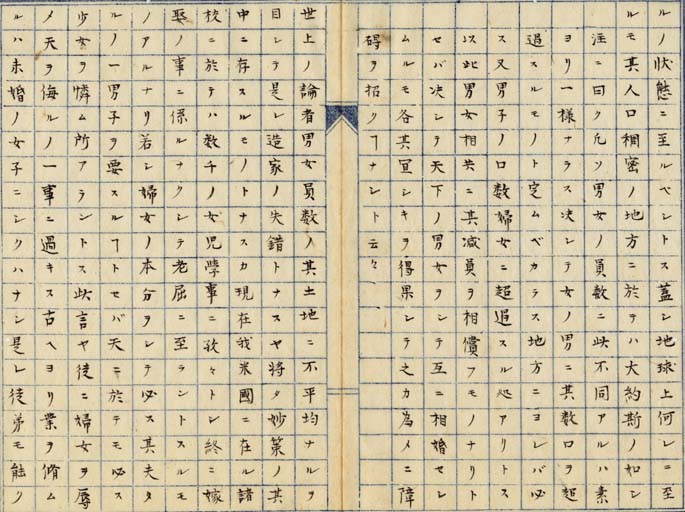 ルノ状態ニ至ルベントス蓋シ地球上何レニ至
ルモ其人口稠密ノ地方ニ於テハ大約斯ノ如シ
注ニ曰ク凡ソ男女ノ員数ニ此不同アルハ素
ヨリ一様ナラス决シテ女ノ男ニ其数口ヲ超
過スルモノト定ムベカラス地方ニヨレバ必
ス又男子ノ口数婦女ニ超過スル処アリトス
以此男女相共ニ其减員ヲ相償フモノナリト
セバ决シテ天下ノ男女ヲシテ互ニ相婚セレ
ムルモ各其宜シキヲ得果シテ之カ為メニ障
碍ヲ招クヿナシト云々
世上ノ論者男女員数ノ其土地ニ不平均ナルヲ
目シテ是レ造家ノ失錯トナスヤ将タ妙策ノ其
中ニ存スルモノトナスカ現在我米國ニ在ル諸
校ニ於テハ数千ノ女児學事ニ孜々トシ終ニ嫁
娶ノ事ニ係ルナクシテ老屈ニ至ラントスルモ
ノアルナリ若シ婦女ノ本分ヲシテ必ス其夫タ
ルノ一男子ヲ要スルヿトセバ天ニ於テモ必ス
少女ヲ憐ム所アラントス此言ヤ徒ニ婦女ヲ辱
メ天ヲ侮ルノ一事ニ過キス古ヘヨリ業ヲ脩ム
ルハ未婚ノ女子ニシクハナシ是レ徒弟モ能ク